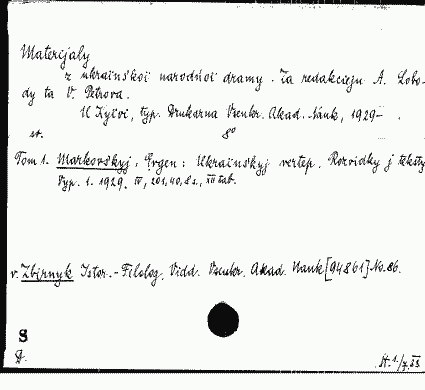 Materijaly
z ukraïnśkoï narodńoï dramy. Za redakcijeju A. Lobo-
dy ta V. Petrova.
U Kyïvi, typ. Drukarna Vseukr. Akad. Nauk, 1929- .
st. 8°
Tom 1. Markovśkyj, Evgen: Ukraïnśkyj vertep. Rozvidky j teksty
Vyp. 1. 1929. IV, 201, 40, 8 s., XII tab.
v. Zbirnyk Istor.-Filolog. Vidd. Vseukr. Akad. Nauk [94861] No. 86.
S